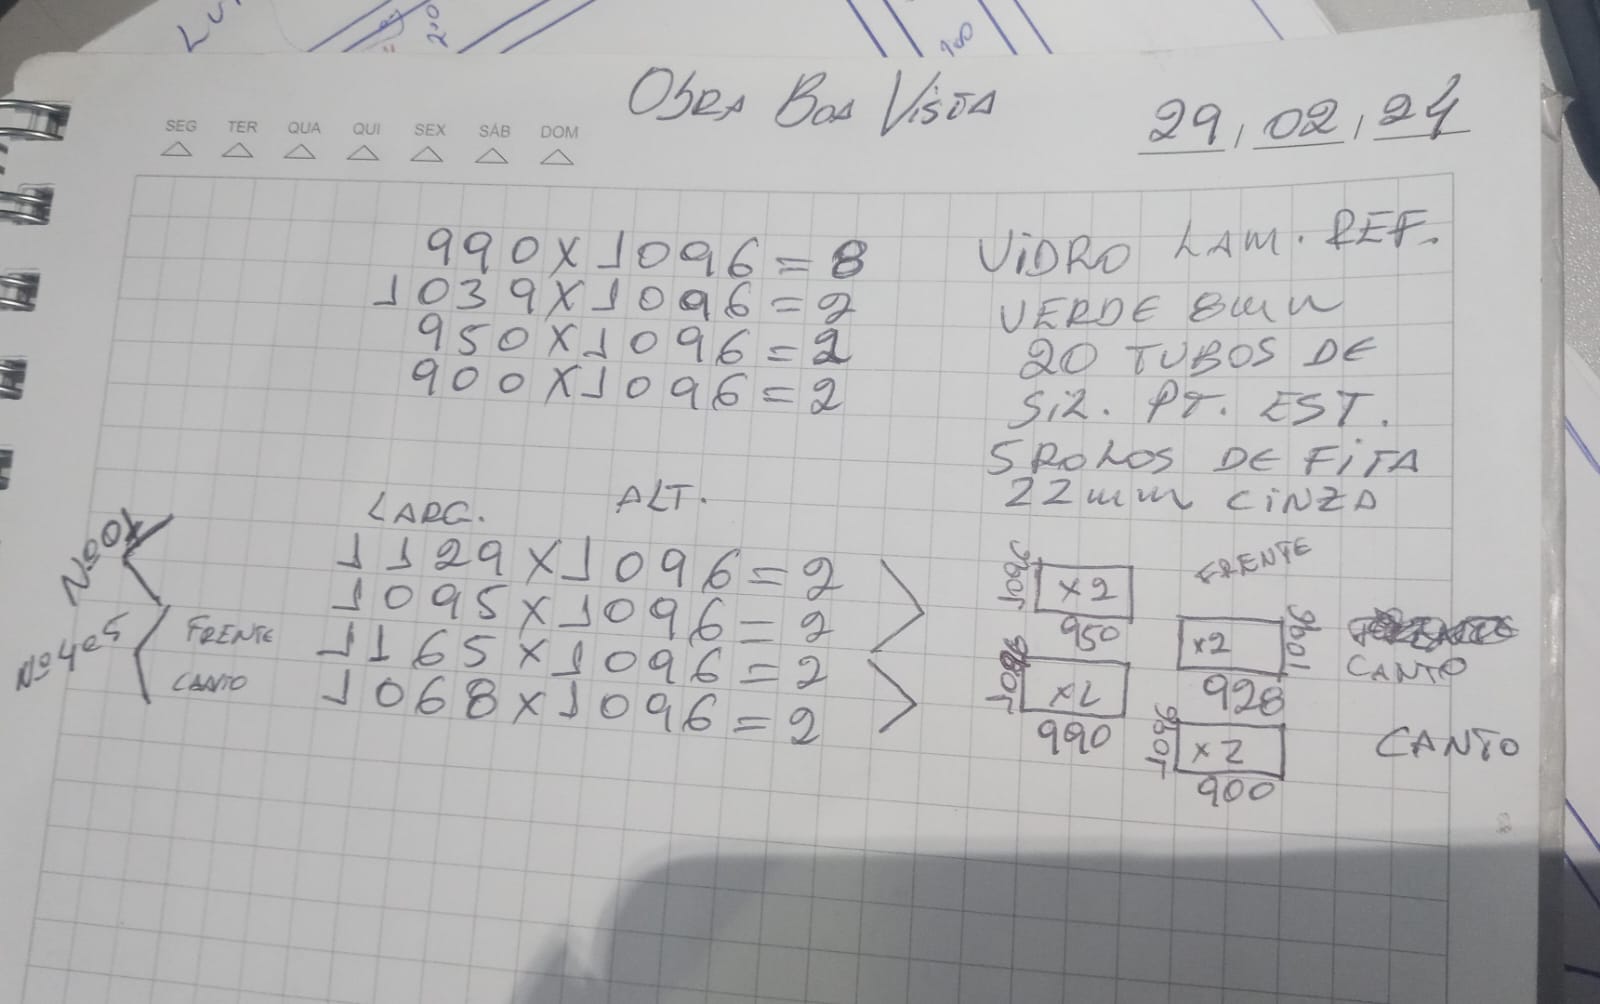 OBRA BOA VISTA
29, 02, 24
SEG TER QUA QUI SEX SÁB DOM
990 X 1096 = 8
1039 X 1096 = 2
950 X 1096 = 2
900 X 1096 = 2
VIDRO LAM. REF.
VERDE 8mm
20 TUBOS DE
SIL. PT. EST.
5 ROLOS DE FITA
22mm CINZA
LARG. ALT.
1129 X 1096 = 2
1095 X 1096 = 2
Nº 4e5
FRENTE 1165 X 1096 = 2
CANTO 1068 X 1096 = 2
FRENTE
1096 X2
950
X2 1096
928
CANTO
1096
990
1096 X2
900
CANTO
200